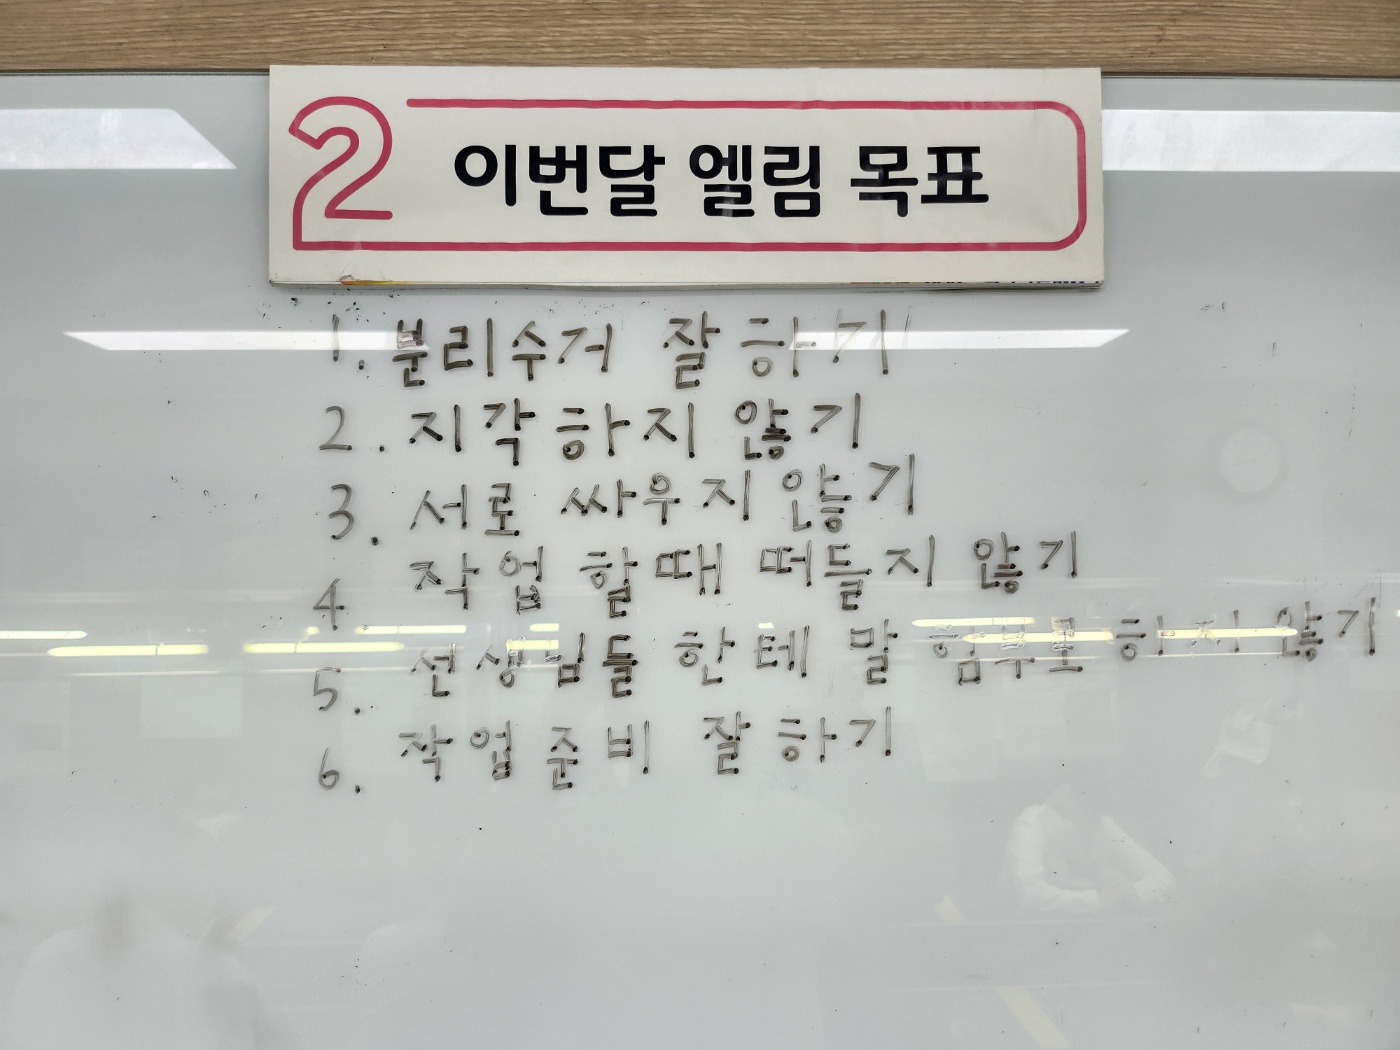 2 이번달 엘림 목표
1. 분리수거 잘 하기
2. 지각하지 않기
3. 서로 싸우지 않기
4 작업 할때 떠들지 않기
5. 선생님들 한테 말 험부로 하지 않기
6. 작업준비 잘하기